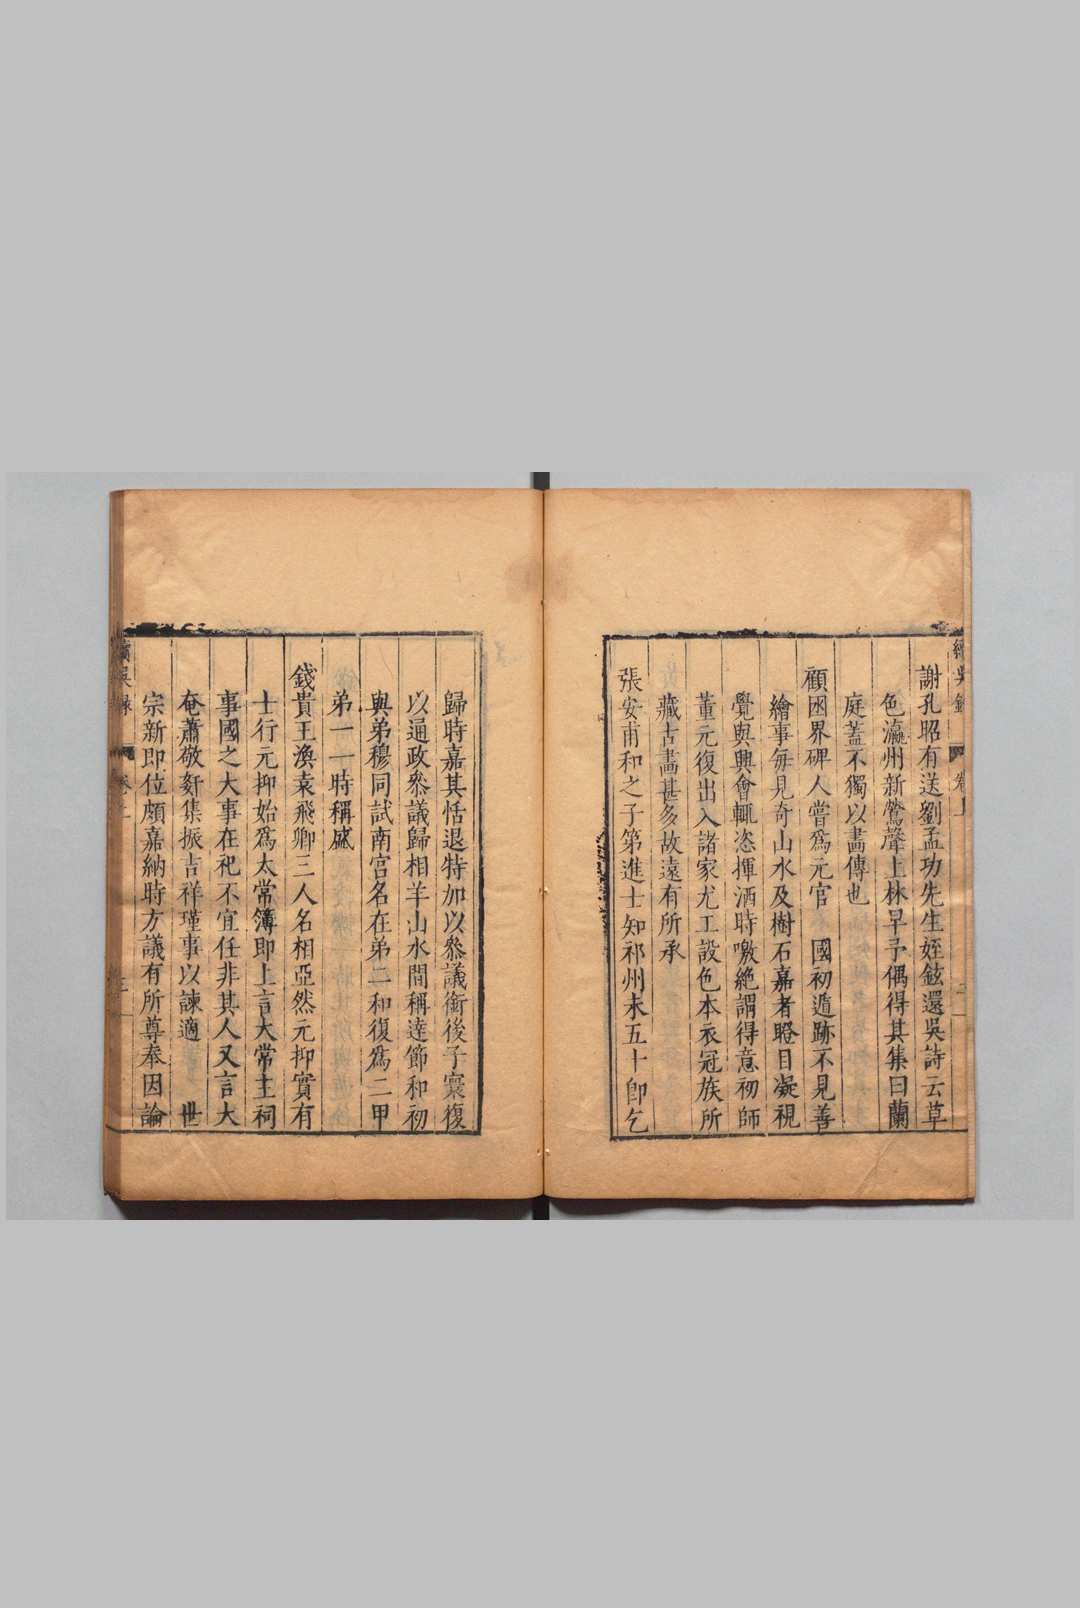 謝孔昭有送劉孟功先生姪鉉還吳詩云草
色瀛州新鶯聲上林早予偶得其集曰蘭
庭蓋不獨以畫傳也
顧囦界碑人嘗爲元官 國初遁跡不見善
繪事每見奇山水及樹石嘉者瞪目凝視
覺與興會輒恣揮洒時噭絶謂得意初師
董元復出入諸家尤工設色本衣冠族所
藏古畵甚多故遠有所承
張安甫和之子第進士知祁州未五十卽乞
歸時嘉其恬退特加以叅議銜後子寰復
以通政叅議歸相羊山水間稱逹節和初
與弟穆同試南宫名在弟二和復爲二甲
弟一一時稱盛
錢貴王渙袁飛卿三人名相亞然元抑實有
士行元抑始爲太常簿即上言大常主祠
事國之大事在祀不宜任非其人又言大
奄蕭敬姧集振吉祥瑾事以諫適 世
宗新即位頗嘉納時方議有所尊奉因論
續吳錄
卷上